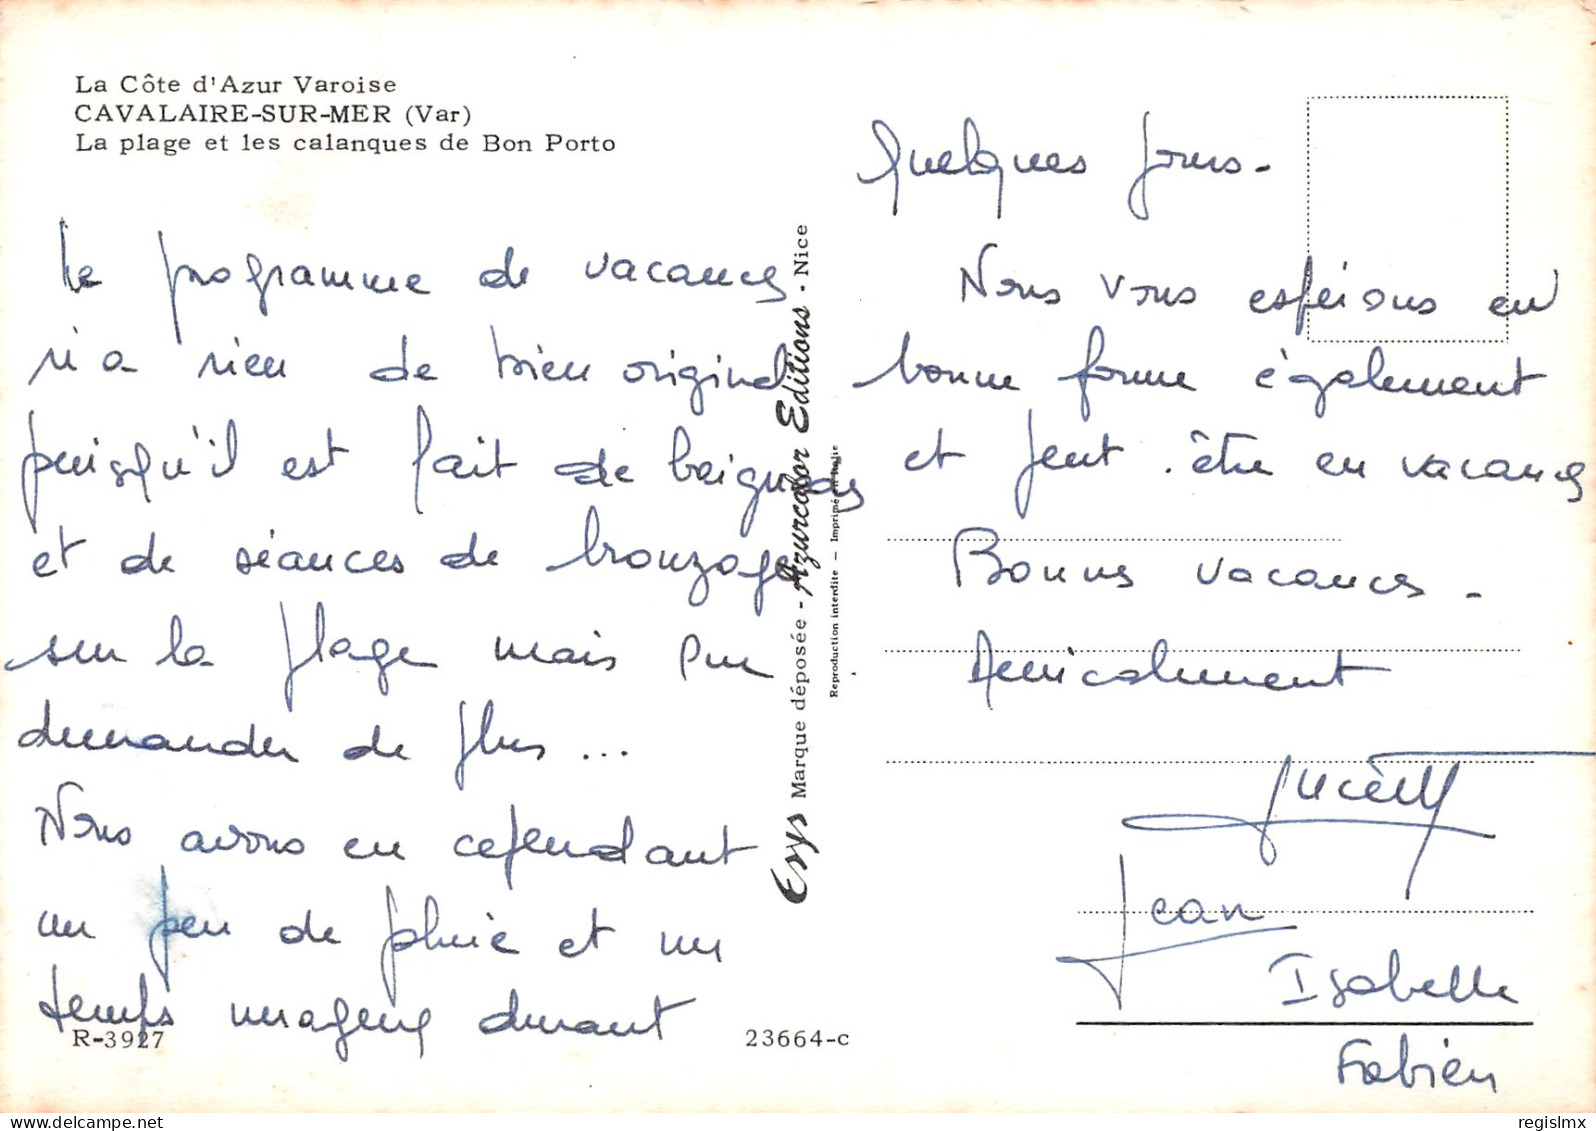 La Côte d'Azur Varoise
CAVALAIRE-SUR-MER (Var)
La plage et les calanques de Bon Porto
Le programme de vacances
n'a rien de bien original
puisqu'il est fait de baignades
et de séances de bronzage
sur la plage mais que
demander de plus...
Nous avons eu cependant
un peu de pluie et un
temps nuageux durant
R-3927
23664-c
Esys Marque déposée - Azurcolor Editions - Nice
Reproduction interdite - Imprimé en Italie
quelques jours.
Nous vous espérons en
bonne forme également
et peut-être en vacances
Bonnes vacances.
Amicalement
Jean
Isabelle
Fabien
delcampe.net
regislmx